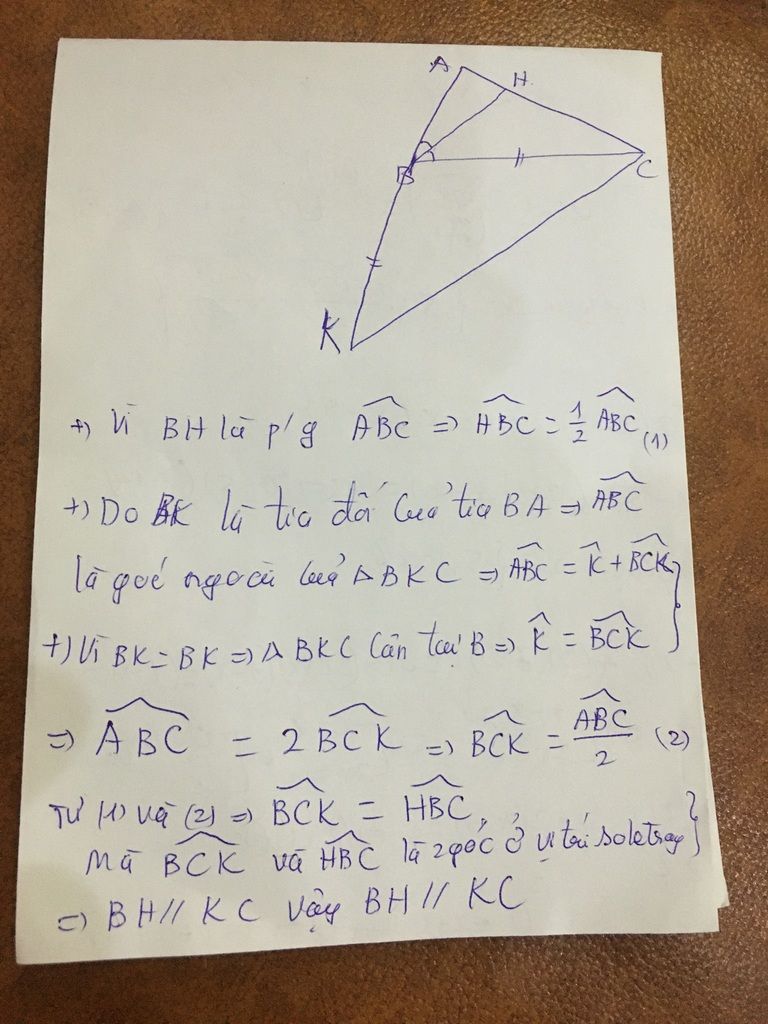 A
H
B
C
K
+) Vì BH là p/g \widehat{ABC} => \widehat{HBC} = \frac{1}{2} \widehat{ABC} (1)
+) Do BK là tia đối của tia BA => \widehat{ABC}
là góc ngoài của Δ BKC => \widehat{ABC} = \widehat{K} + \widehat{BCK}
+) Vì BK = BK => Δ BKC cân tại B => \widehat{K} = \widehat{BCK}
=> \widehat{ABC} = 2 \widehat{BCK} => \widehat{BCK} = \frac{\widehat{ABC}}{2} (2)
Từ (1) và (2) => \widehat{BCK} = \widehat{HBC},
Mà \widehat{BCK} và \widehat{HBC} là 2 góc ở vị trí soletrong
=> BH // KC vậy BH // KC